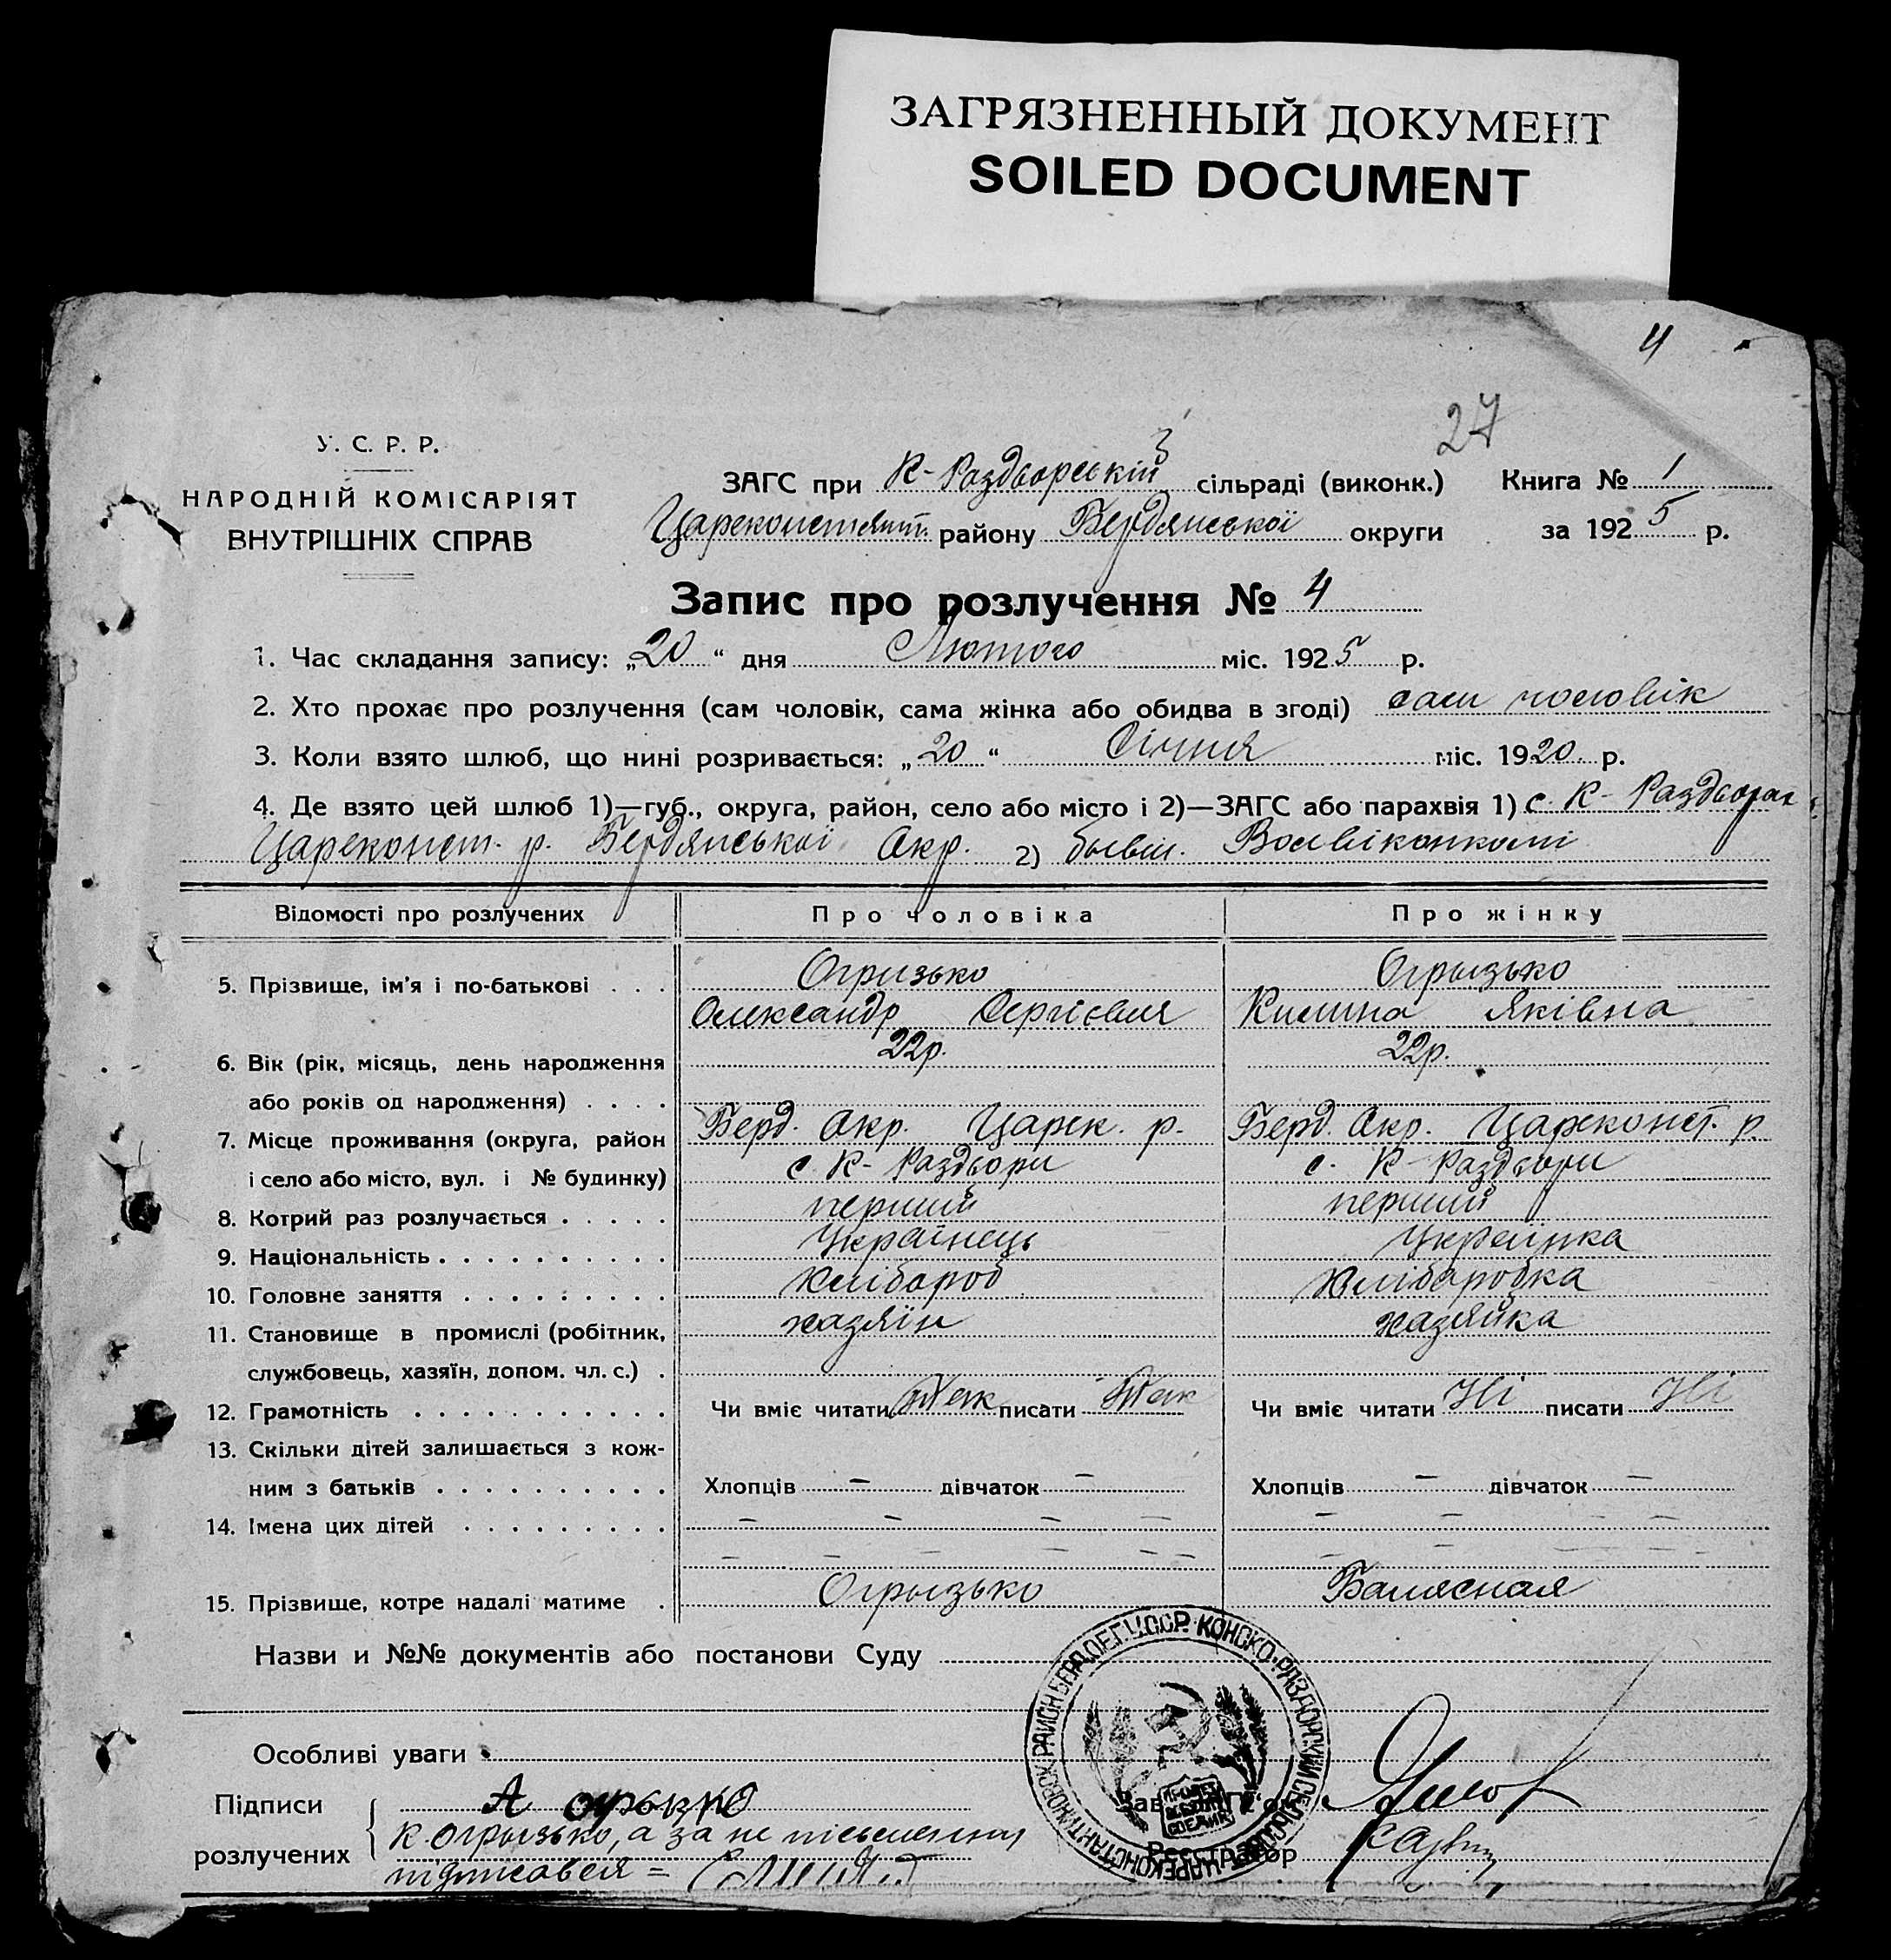 ЗАГРЯЗНЕННЫЙ ДОКУМЕНТ
SOILED DOCUMENT
4
27
У. С. Р. Р.
НАРОДНІЙ КОМІСАРІЯТ
ВНУТРІШНІХ СПРАВ
ЗАГС при К-Раздворській сільраді (виконк.) Книга № 1
Цареконстянт. району Бердянської округи за 1925 р.
Запис про розлучення № 4
1. Час складання запису: „20“ дня Лютого міс. 1925 р.
2. Хто прохає про розлучення (сам чоловік, сама жінка або обидва в згоді) сам чоловік
3. Коли взято шлюб, що нині розривається: „20“ Січня міс. 1920 р.
4. Де взято цей шлюб 1)—губ., округа, район, село або місто і 2)—ЗАГС або парахвія 1) с. К- Раздворах
Цареконст. р. Бердянської Окр. 2) бывш. Волвіконкомі
Відомості про розлучених Про чоловіка Про жінку
Огризько Огрызько
5. Прізвище, ім'я і по-батькові . . .
Олександр Сергієвич Килина Яківна
22р. 22р.
6. Вік (рік, місяць, день народження
або років од народження) . . . .
Берд. Окр. Царек. р. Берд. Окр. Цареконст. р.
7. Місце проживання (округа, район
с К- Раздори с. К- Раздори
і село або місто, вул. і № будинку)
8. Котрий раз розлучається . . . . . перший перший
9. Національність . . . . . . . . . . Українець Українка
10. Головне заняття . . . . . . . . . Хлібороб Хліборобка
11. Становище в промислі (робітник, хазяїн хазяйка
службовець, хазяїн, допом. чл. с.) .
12. Грамотність . . . . . . . . . . . Чи вміє читати Так писати Так Чи вміє читати Ні писати Ні
13. Скільки дітей залишається з кож-
ним з батьків . . . . . . . . . . Хлопців — дівчаток — Хлопців — дівчаток —
14. Імена цих дітей . . . . . . . . . — — — — — — — —
— — — — — — — — — — —
15. Прізвище, котре надалі матиме . Огрызько Балясная
Назви и №№ документів або постанови Суду
Особливі уваги
Підписи А огрызко
розлучених К. Огрызько, а за не письменну
підписався =
Реєстратор
ЦАРЕКОНСТАНТИНОВСК. РАЙОН БЕРД. ОЕГ. У.ССР. КОНСКО-РАЗДОРСКИЙ СЕЛЬСОВЕТ